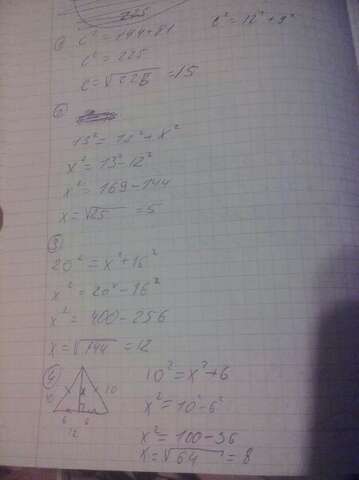 225
c² = 12² + 9²
c² = 144 + 81
c² = 225
c = √225 = 15
б
13² = 12² + x²
x² = 13² - 12²
x² = 169 - 144
x = √25 = 5
3
20² = x² + 16²
x² = 20² - 16²
x² = 400 - 256
x = √144 = 12
4
10 10
x
6 6
12
10² = x² + 6
x² = 10² - 6²
x² = 100 - 36
x = √64 = 8